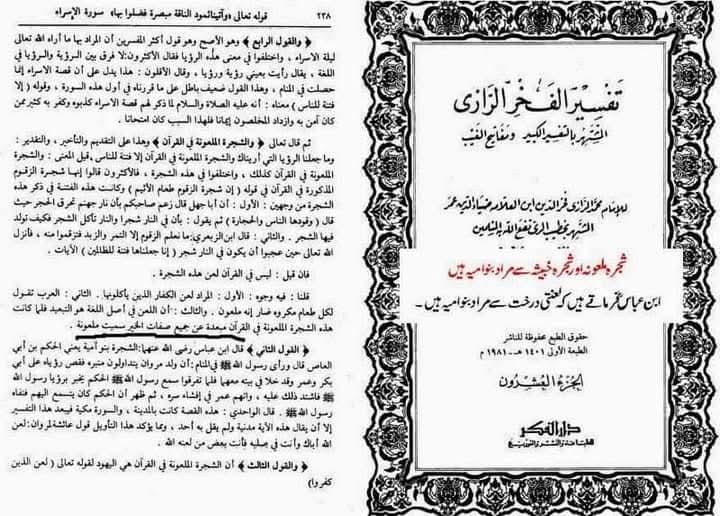 تفسير الفخر الرازى
المشتهر بالتفسير الكبير ومفاتيح الغيب
للإمام محمد الرازى فخر الدين ابن العلامه ضياء الدين عمر
المشتهر بخطيب الرى نفع الله به المسلمين
شجرہ ملعونہ اور شجرہ خبیثہ سے مراد بنو امیہ ہیں
ابن عباس فرماتے ہیں کہ لعنتی درخت سے مراد بنو امیہ ہیں۔
حقوق الطبع محفوظة للناشر
الطبعة الأولى ١٤٠١ هـ - ١٩٨١ م
الجزء العشرون
دار الفكر
للطباعة والنشر والتوزيع
٢٣٨
قوله تعالى «وآتينا ثمود الناقة مبصرة فظلموا بها» سورة الإسراء
﴿والقول الرابع﴾ وهو الأصح وهو قول أكثر المفسرين أن المراد بها ما أراه الله تعالى
ليلة الاسراء ، واختلفوا في معنى هذه الرؤيا فقال الأكثرون : لا فرق بين الرؤية والرؤيا في
اللغة ، يقال رأيت بعيني رؤية ورؤيا ، وقال الأقلون : هذا يدل على أن قصة الاسراء إنما
حصلت في المنام ، وهذا القول ضعيف باطل على ما قررناه في أول هذه السورة ، وقوله ( إلا
فتنة للناس ) معناه : أنه عليه الصلاة والسلام لما ذكر لهم قصة الاسراء كذبوه وكفر به كثير ممن
كان آمن به وازداد المخلصون إيمانا فلهذا السبب كان امتحانا .
ثم قال تعالى ﴿والشجرة الملعونة في القرآن﴾ وهذا على التقديم والتأخير ، والتقدير :
وما جعلنا الرؤيا التي أريناك والشجرة الملعونة في القرآن إلا فتنة للناس ، قيل المعنى : والشجرة
الملعونة في القرآن كذلك ، واختلفوا في هذه الشجرة ، فالأكثرون قالوا إنها شجرة الزقوم
المذكورة في القرآن في قوله ( إن شجرة الزقوم طعام الأثيم ) وكانت هذه الفتنة في ذكر هذه
الشجرة من وجهين : الأول : أن أبا جهل قال زعم صاحبكم بأن نار جهنم تحرق الحجر حيث
قال ( وقودها الناس والحجارة ) ثم يقول : بأن في النار شجرا والنار تأكل الشجر فكيف تولد
فيها الشجر . والثاني : قال ابن الزبعري : ما نعلم الزقوم إلا التمر والزبد فتزقموا منه ، فأنزل
الله تعالى حين عجبوا أن يكون في النار شجر ( إنا جعلناها فتنة للظالمين ) الآيات .
فان قيل : ليس في القرآن لعن هذه الشجرة .
قلنا : فيه وجوه : الأول : المراد لعن الكفار الذين يأكلونها . والثاني : العرب تقول
لكل طعام مكروه ضار إنه ملعون . والثالث : أن اللعن في أصل اللغة هو التبعيد فلما كانت
هذه الشجرة الملعونة في القرآن مبعدة عن جميع صفات الخير سميت ملعونة .
﴿القول الثاني﴾ قال ابن عباس رضى الله عنهما : الشجرة بنو أمية يعني الحكم بن أبي
العاص قال ورأى رسول الله ﷺ في المنام : أن ولد مروان يتداولون منبره فقص رؤياه على أبي
بكر وعمر وقد خلا في بيته معهما فلما تفرقوا سمع رسول الله ﷺ الحكم يخبر برؤيا رسول
الله ﷺ فاشتد ذلك عليه ، واتهم عمر في إفشاء سره ، ثم ظهر أن الحكم كان يتسمع إليهم فنفاه
رسول الله ﷺ . قال الواحدي : هذه القصة كانت بالمدينة ، والسورة مكية فيبعد هذا التفسير
إلا أن يقال هذه الآية مدنية ولم يقل به أحد ، ومما يؤكد هذا التأويل قول عائشة لمروان : لعن
الله أباك وأنت في صلبه فأنت بعض من لعنه الله .
﴿والقول الثالث﴾ أن الشجرة الملعونة في القرآن هي اليهود لقوله تعالى ( لعن الذين
كفروا )